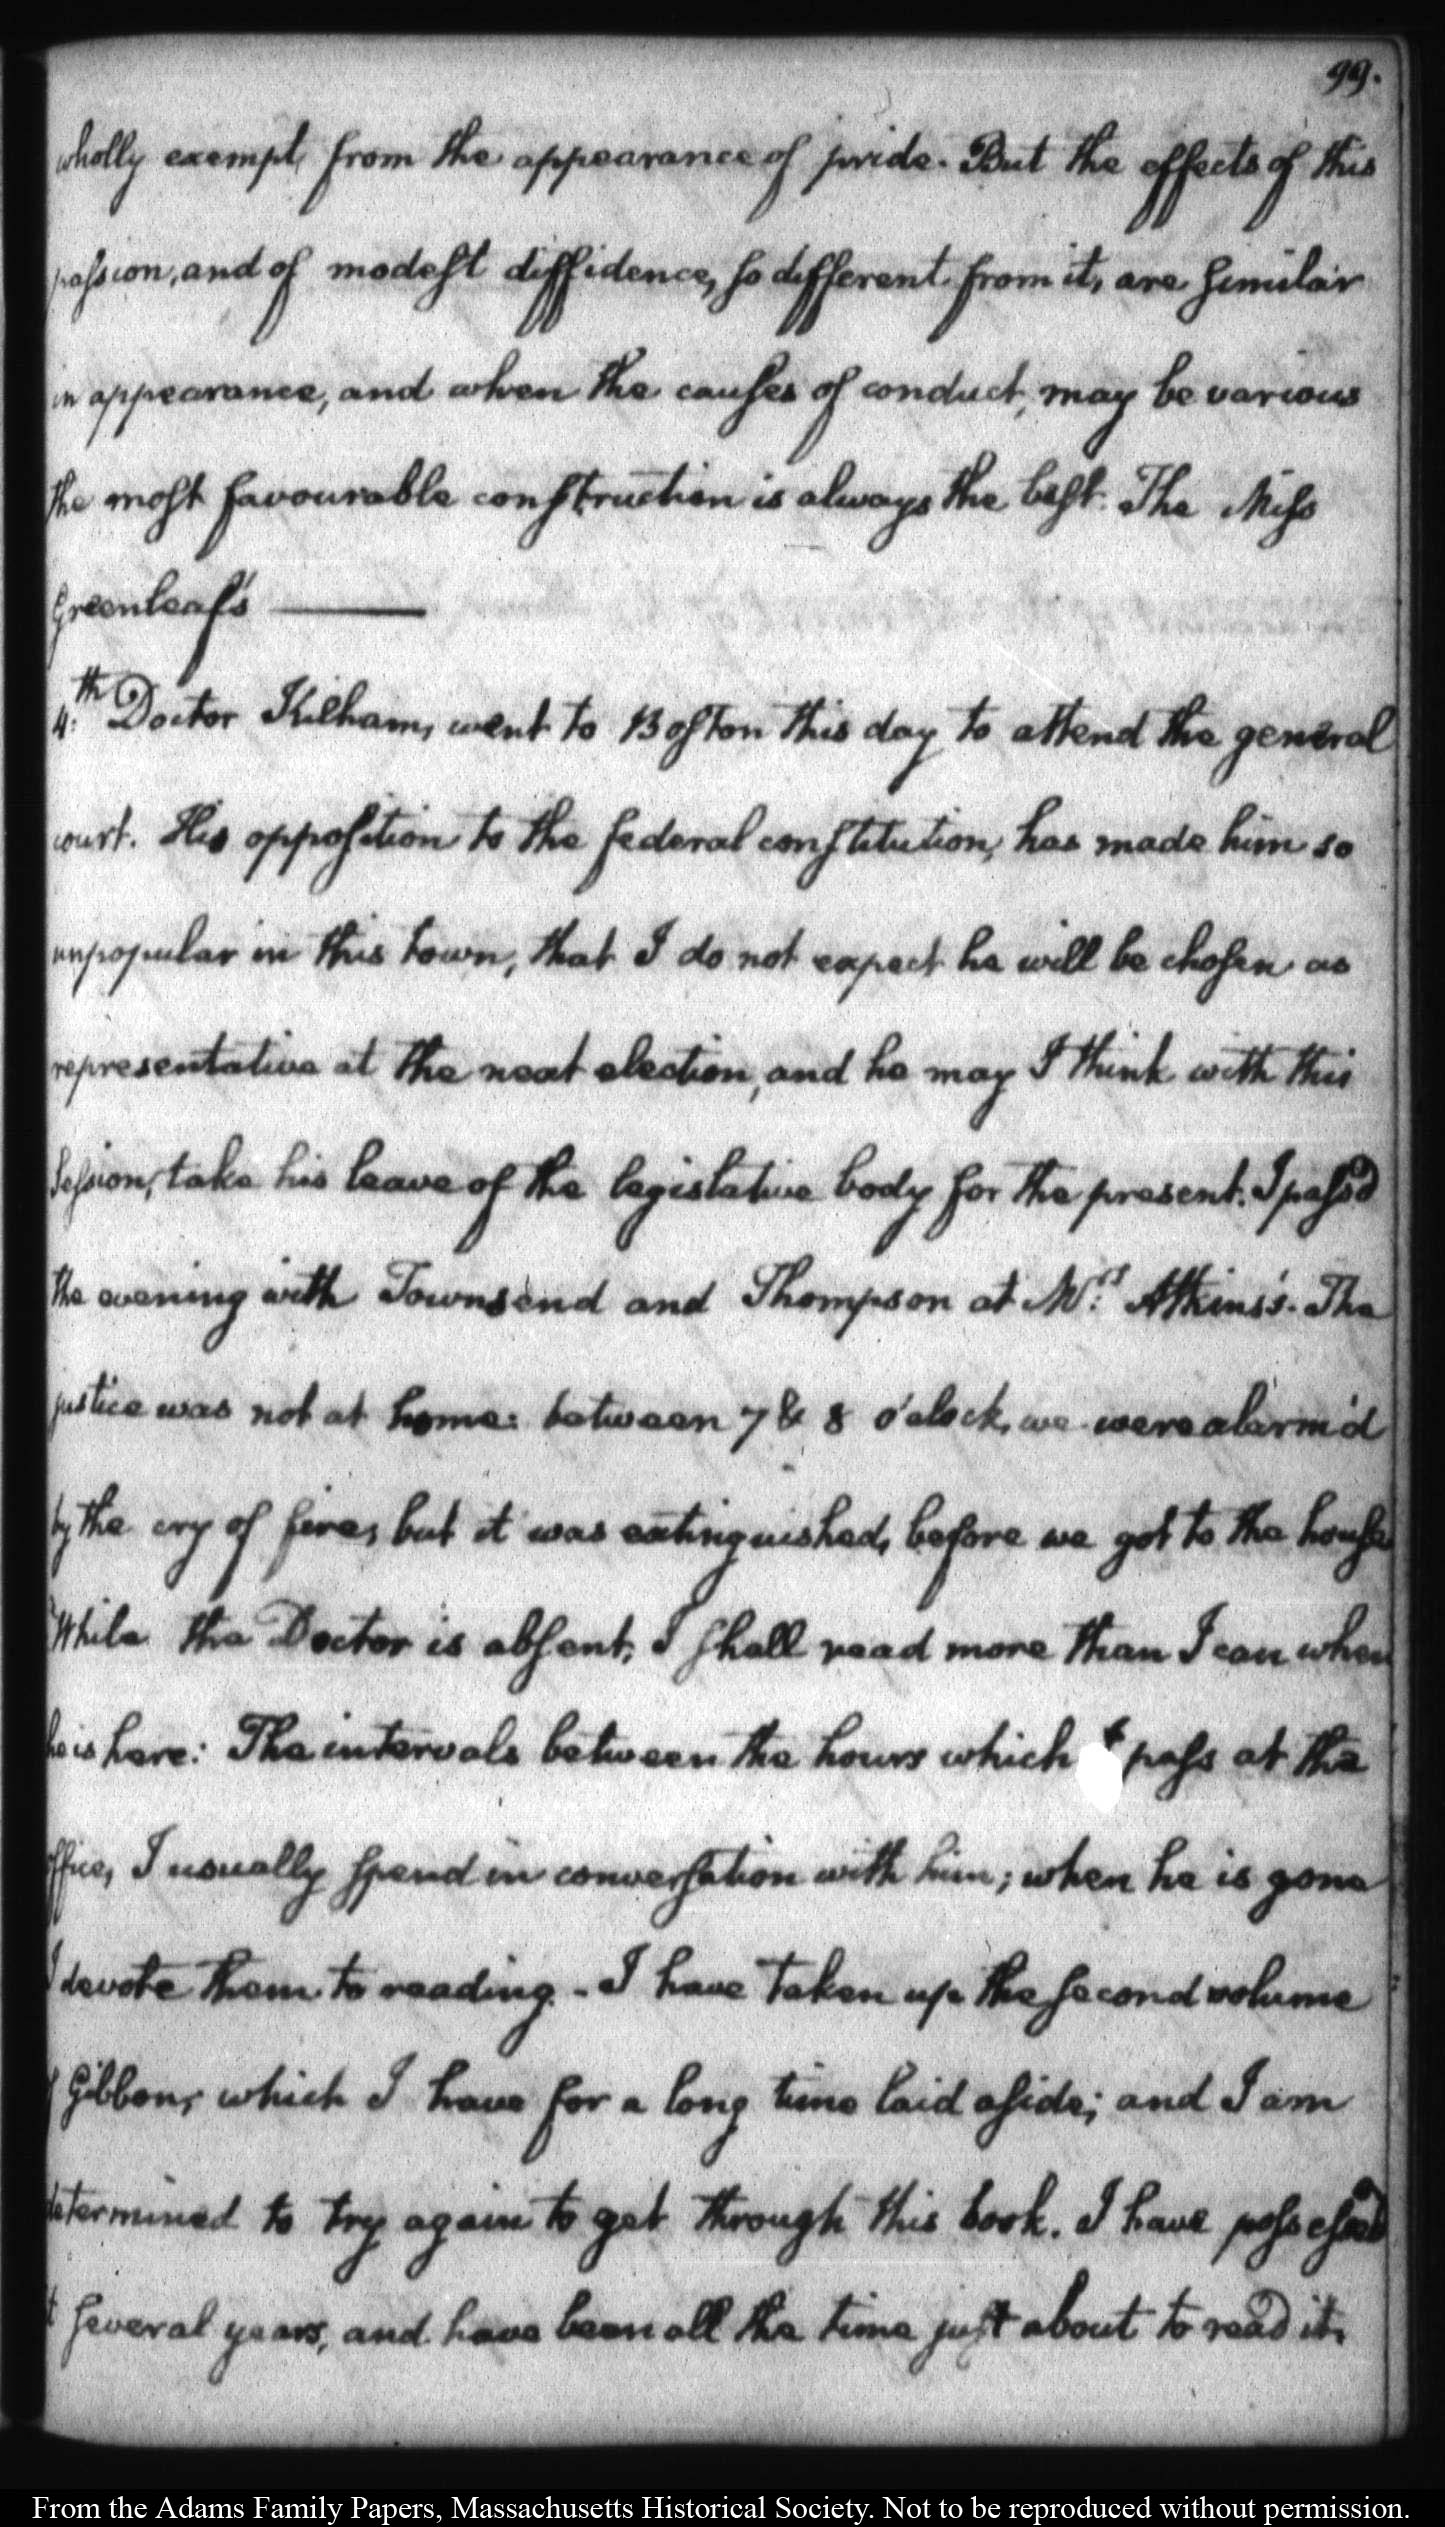 99.
wholly exempt, from the appearance of pride. But the effects of this
passion, and of modest diffidence, so different from it, are similar
in appearance, and when the causes of conduct, may be various
the most favourable construction is always the best. The Miss
Greenleaf's
4:th Doctor Kilham, went to Boston this day to attend the general
court. His opposition to the federal constitution, has made him so
unpopular in this town, that I do not expect he will be chosen as
representative at the next election, and he may I think with this
Session, take his leave of the legislative body for the present. I pass'd
the evening with Townsend and Thompson at Mrs. Atkins's. The
justice was not at home: between 7 & 8 o'clock, we were alarm'd
by the cry of fire, but it was extinguished, before we got to the house
While the Doctor is absent, I shall read more than I can when
he is here: The intervals between the hours which I pass at the
office, I usually spend in conversation with him; when he is gone
I devote them to reading. - I have taken up the second volume
of Gibbon, which I have for a long time laid aside; and I am
determined to try again to get through this book. I have possessed
it several years, and have been all the time just about to read it,
From the Adams Family Papers, Massachusetts Historical Society. Not to be reproduced without permission.